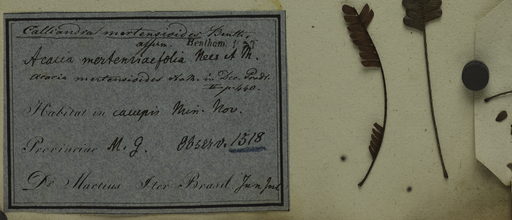 Calliandra mertensioides Benth.
affin. Bentham.
Acacia mertensiaefolia Nees & M.
Acacia mertensioides N. & M. in Dec. Prodr.
II. p. 460.
Habitat in campis Min. Nov.
Provinciae M. G. Observ. 1318
Dr Martius Iter Brasil Jun Jul